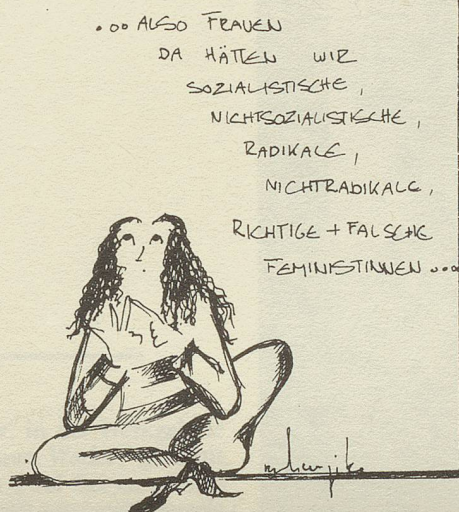 ...ALSO FRAUEN
DA HÄTTEN WIR
SOZIALISTISCHE,
NICHTSOZIALISTISCHE,
RADIKALE,
NICHTRADIKALE,
RICHTIGE + FALSCHE
FEMINISTINNEN...